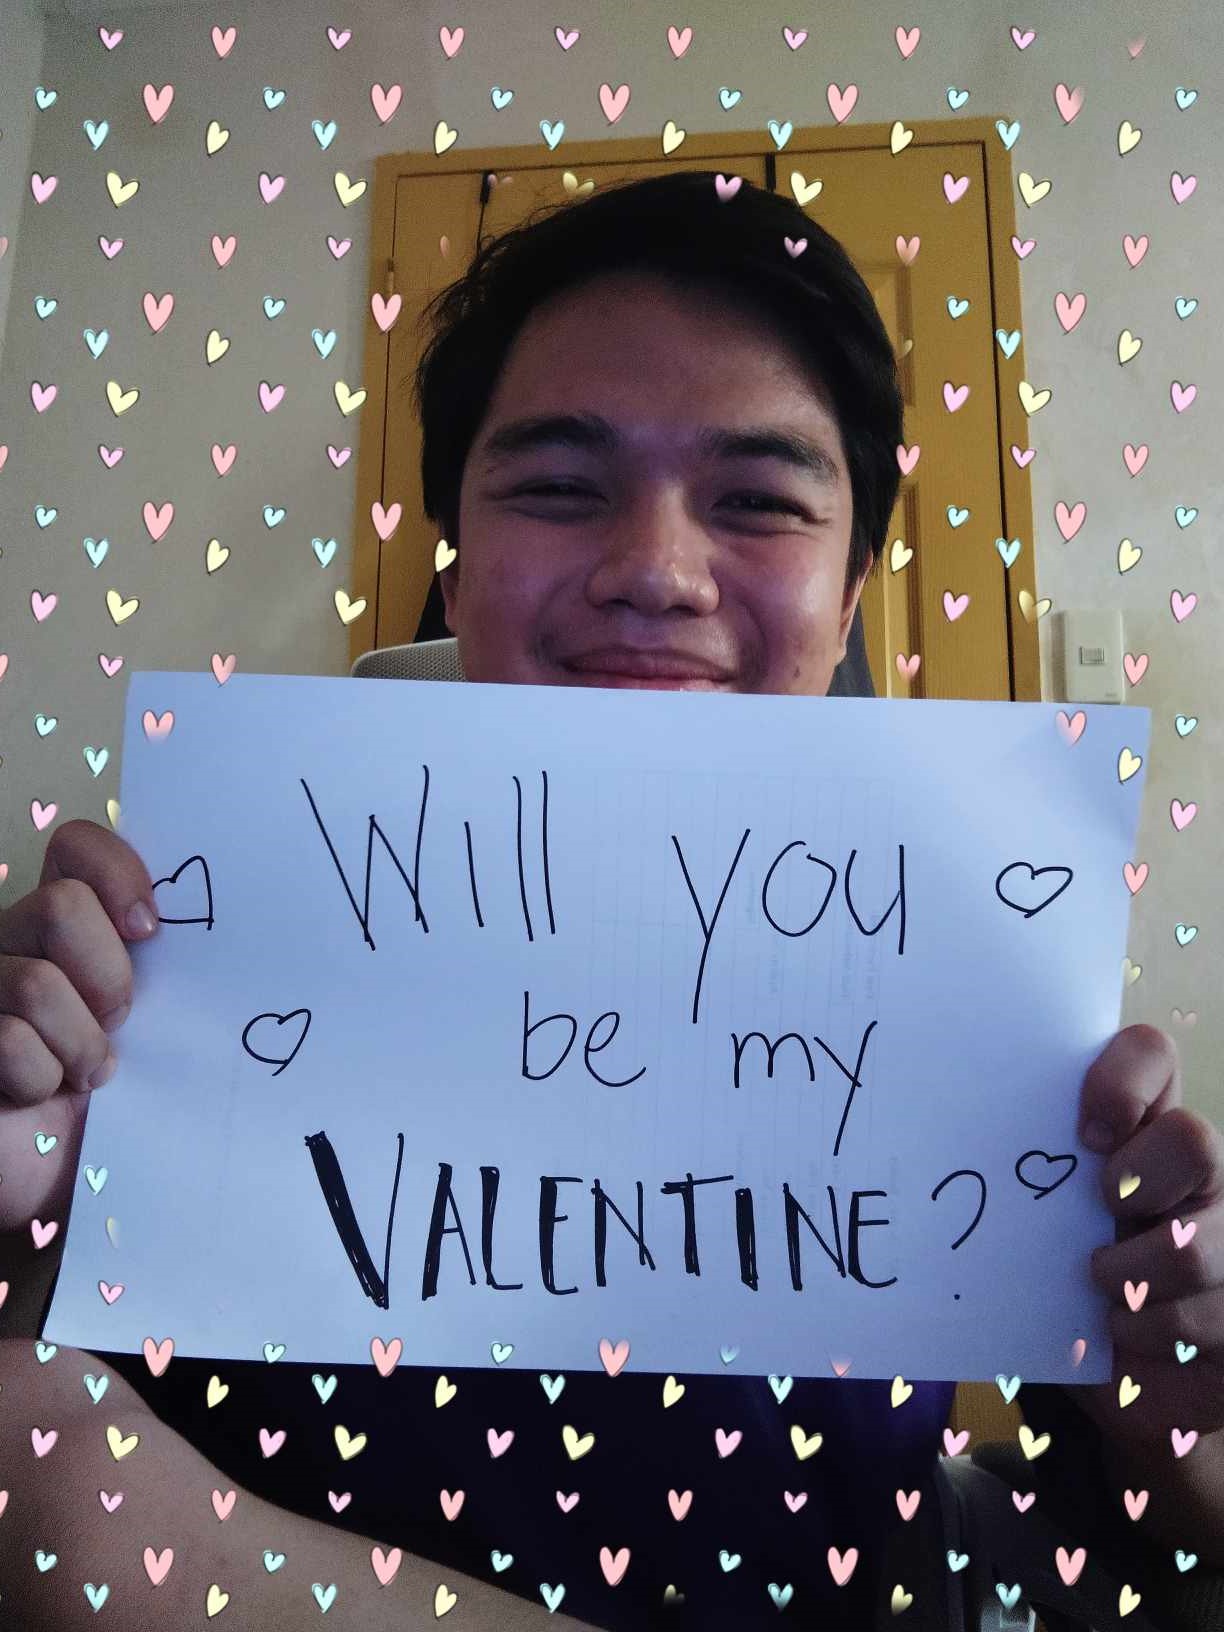 Will you
be my
VALENTINE?